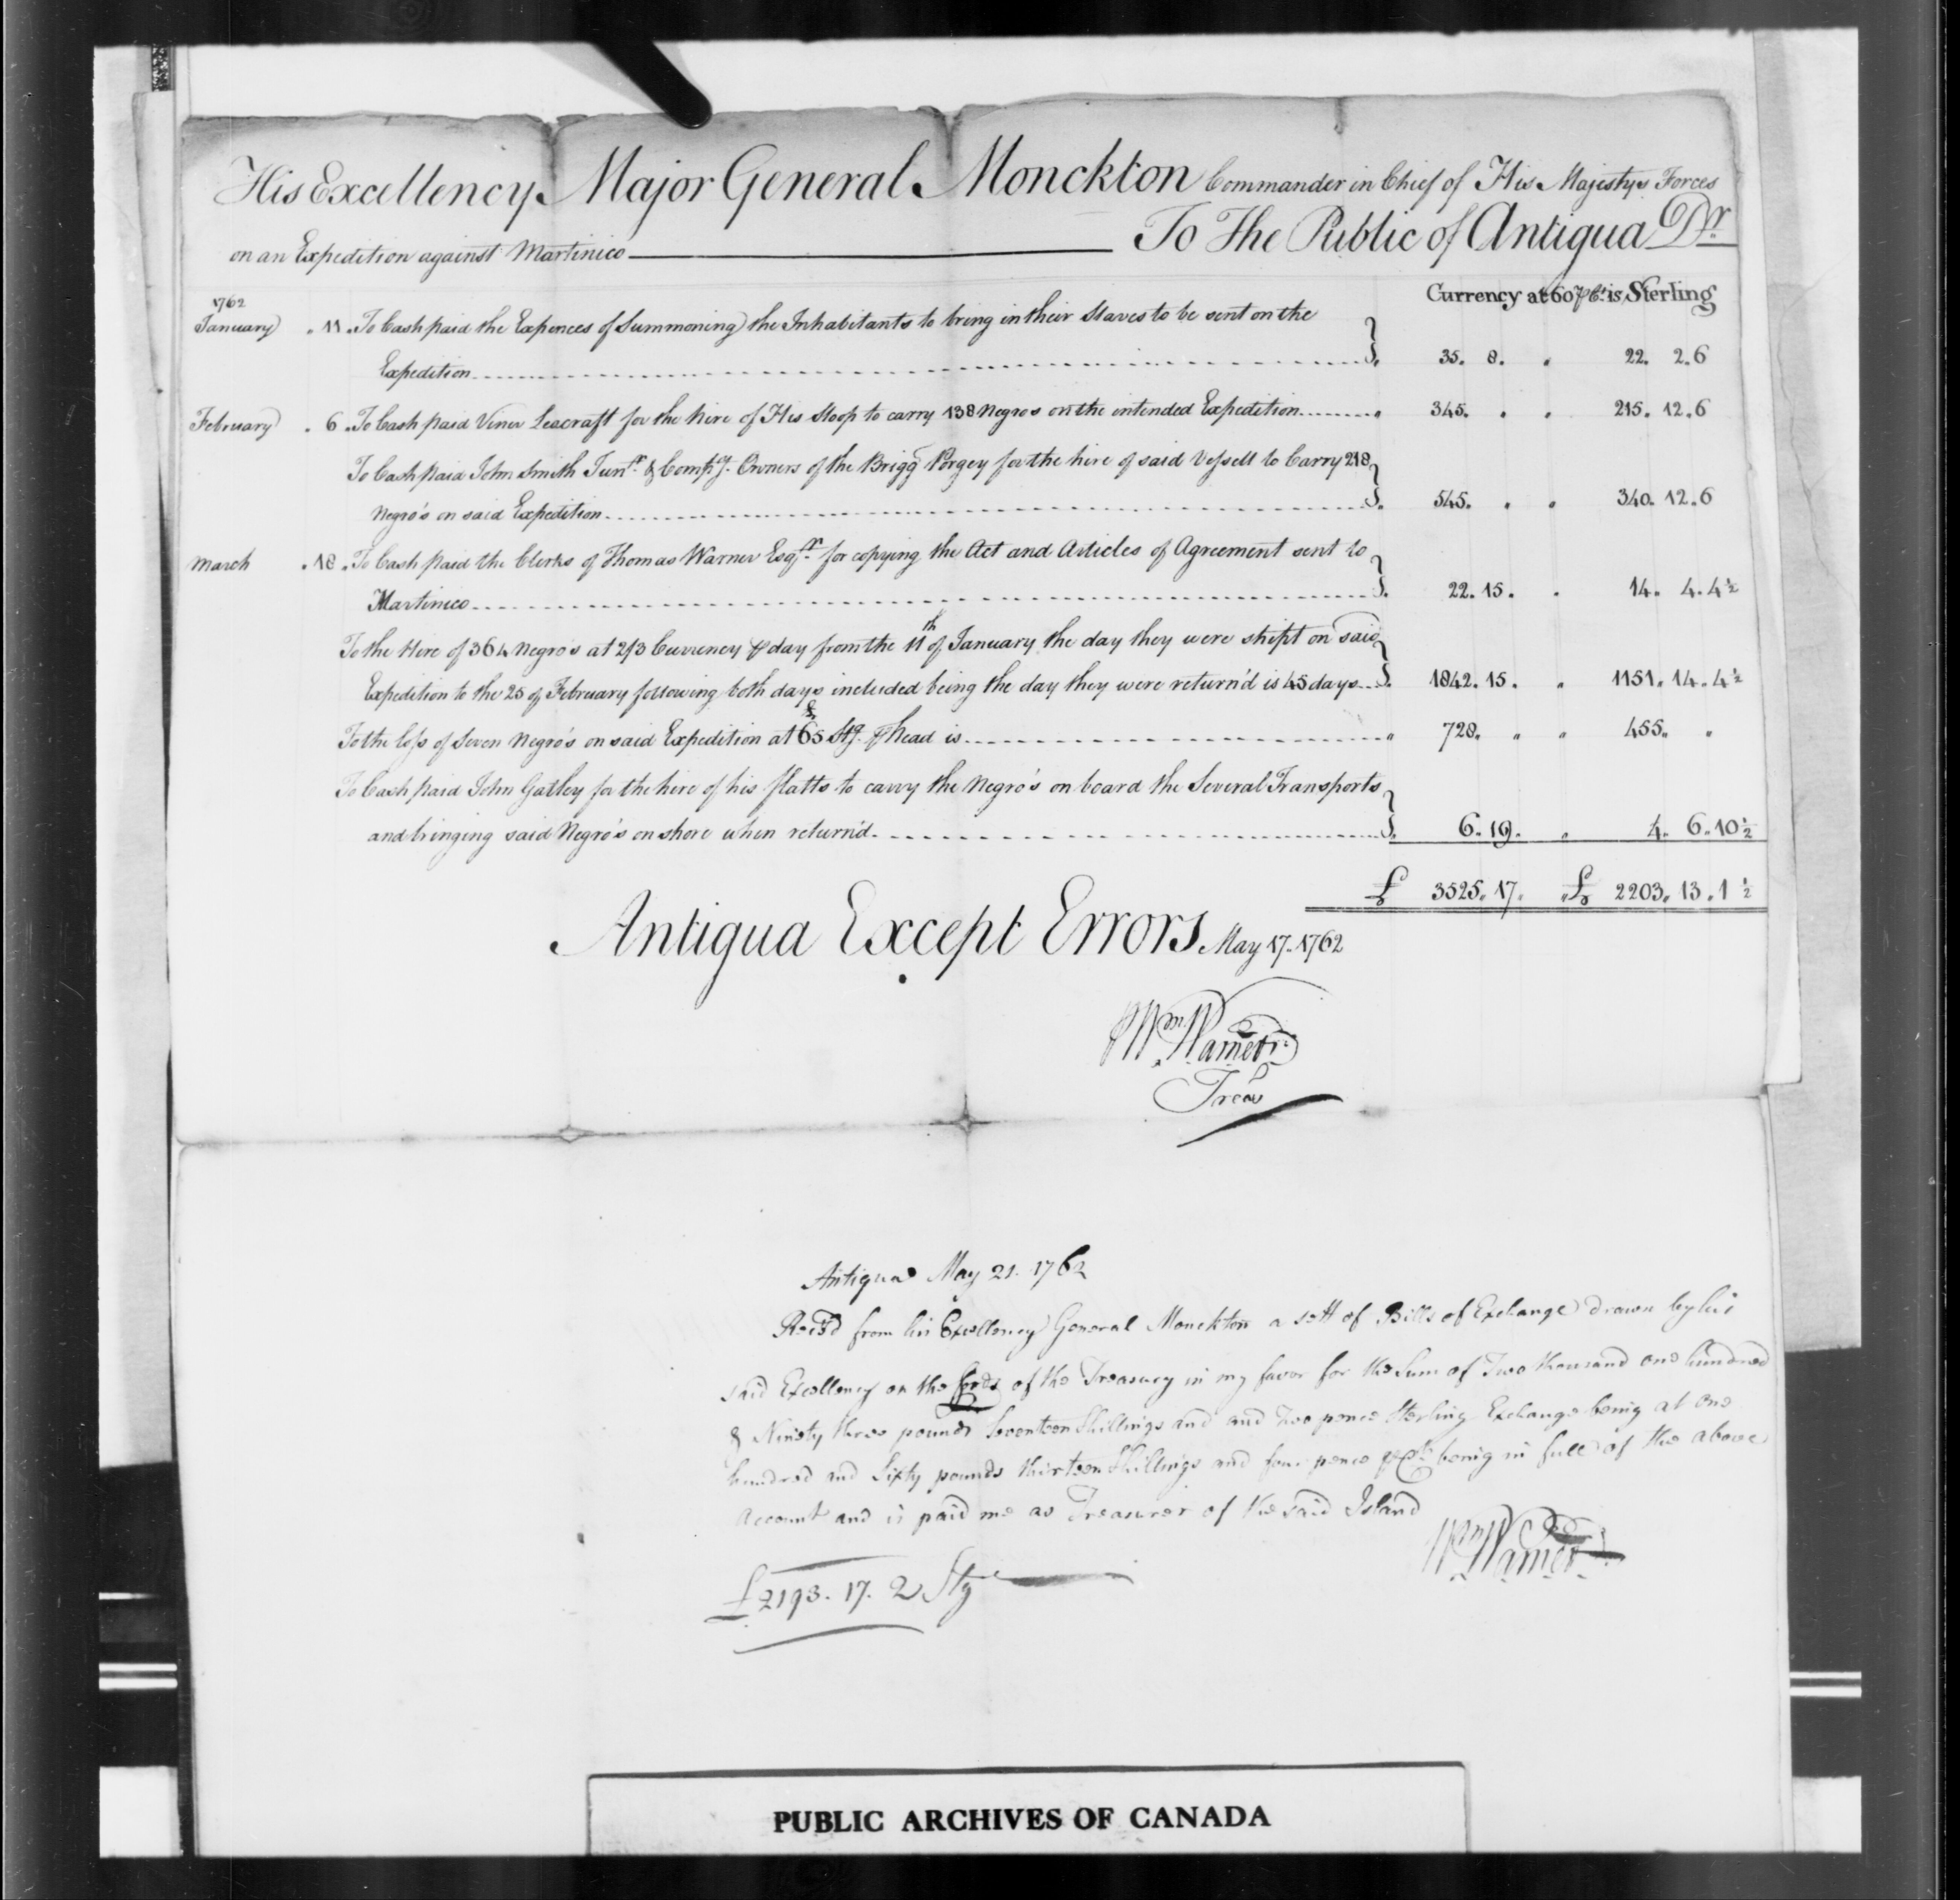 His Excellency Major General Monckton Commander in Chief of His Majestys Forces
on an Expedition against Martinico To The Public of Antigua Dr.
1762 Currency at 60 p Ct. is Sterling
January 11 To Cash paid the Expences of Summoning the Inhabitants to bring in their Slaves to be sent on the
Expedition 35. 8. " 22. 2. 6
February 6 To Cash paid Viner Leacraft for the hire of His Sloop to carry 138 Negros on the intended Expedition 345. " " 215. 12. 6
To Cash paid John Smith Junr. & Compy. Owners of the Brigg Porgey for the hire of said Vessell to Carry 218
Negro's on said Expedition 545. " " 340. 12. 6
March 18 To Cash paid the Clerks of Thomas Warner Esqr. for copying the Act and Articles of Agreement sent to
Martinico 22. 15. " 14. 4. 4½
To the Hire of 364 Negro's at 2/3 Currency p day from the 11th of January the day they were shipt on said
Expedition to the 25 of February following both days included being the day they were return'd is 45 days 1842. 15. " 1151. 14. 4½
To the Loss of Seven Negro's on said Expedition at £65 Stg. p head is 728. " " 455. "
To Cash paid John Gatley for the hire of his flatts to carry the Negro's on board the Several Transports
and bringing said Negro's on shore when return'd 6. 19. " 4. 6. 10½
£ 3525. 17. " £ 2203. 13. 1½
Antigua Except Errors May 17. 1762
Wm Warner
Trear
Antigua May 21. 1762
Reced from his Excellency General Monckton a sett of Bills of Exchange drawn by his
said Excellency on the Lords of the Treasury in my favor for the Sum of Two thousand one hundred
& Ninety three pounds Seventeen Shillings and and Two pence Sterling Exchange being at one
hundred and Sixty pounds thirteen Shillings and four pence p Ct. being in full of the above
Account and is paid me as Treasurer of the said Island
Wm Warner
£2193. 17. 2 Stg
PUBLIC ARCHIVES OF CANADA